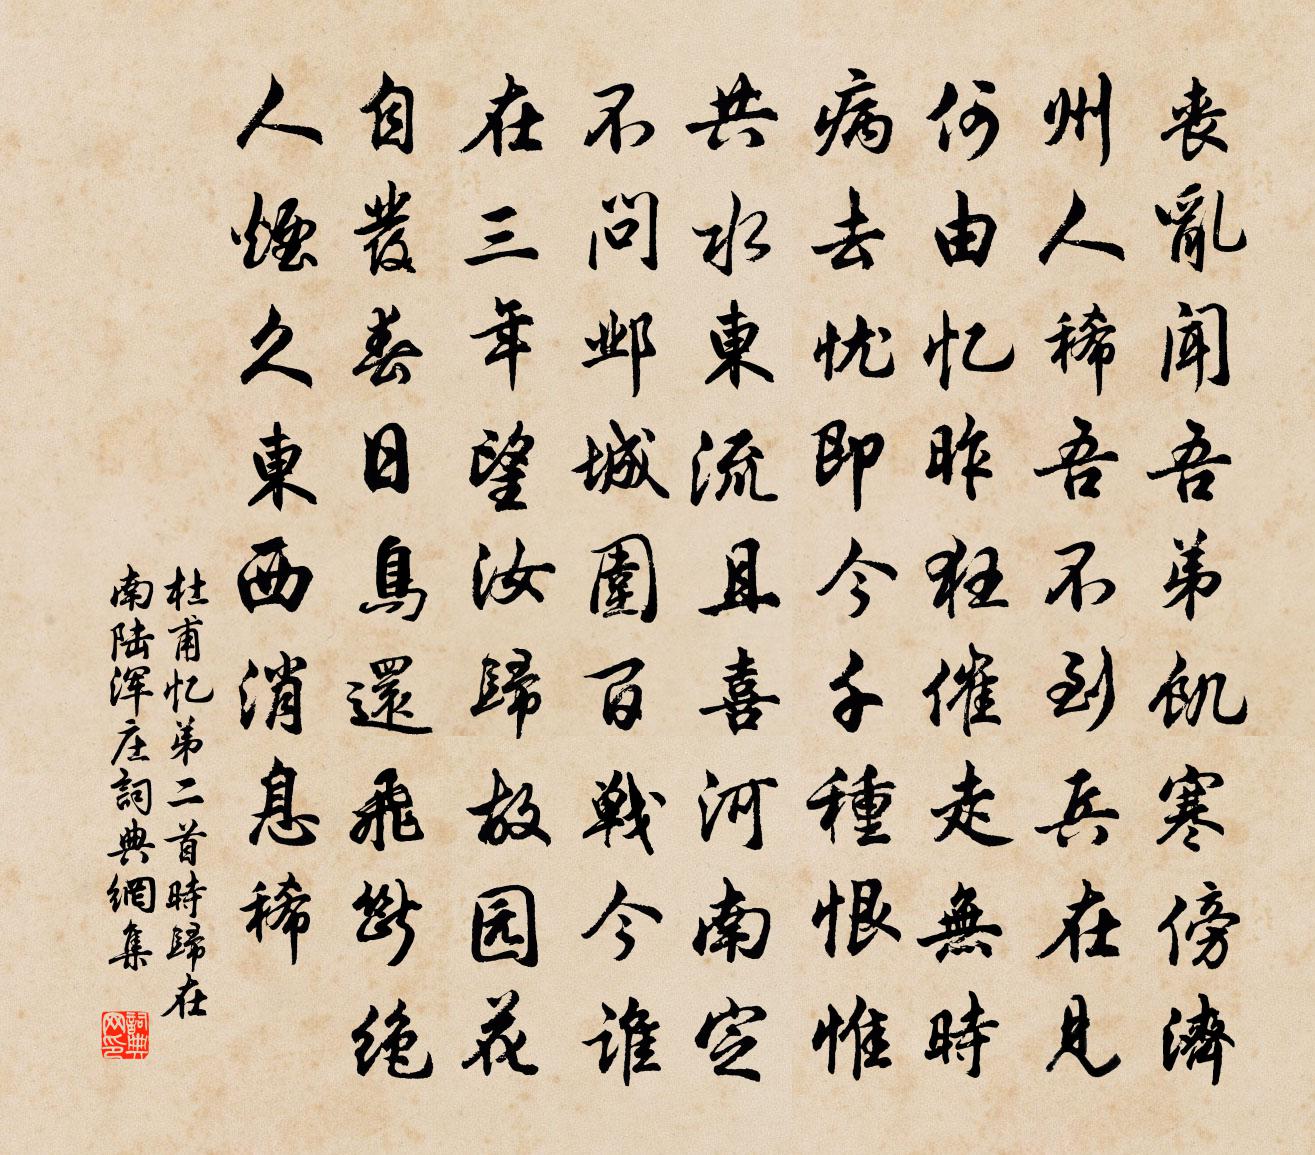 喪亂聞吾弟飢寒傍濟
州人稀吾不到兵在見
何由忆昨狂催走無時
病去忧即今千種恨惟
共水東流且喜河南定
不問邺城圍百戰今谁
在三年望汝歸故园花
自發春日鳥還飛斷绝
人煙久東西消息稀
杜甫忆弟二首時歸在
南陆浑庄詞典網集
詞典网